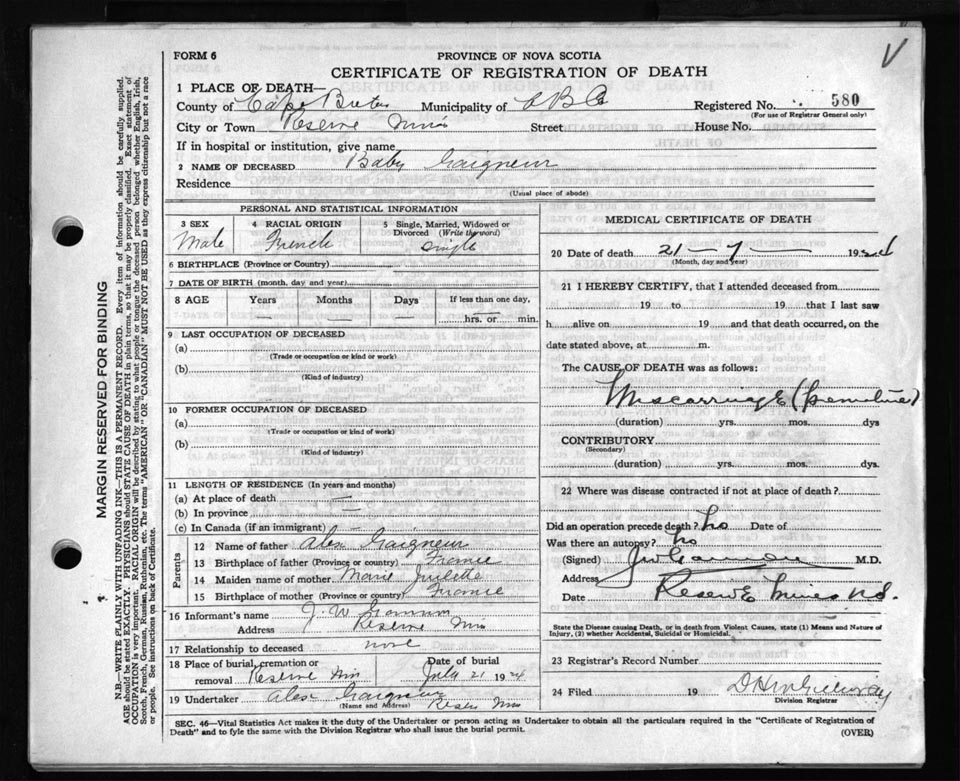 V
FORM 6
PROVINCE OF NOVA SCOTIA
CERTIFICATE OF REGISTRATION OF DEATH
1 PLACE OF DEATH—
County of Cape Breton Municipality of Registered No. 580
(For use of Registrar General only)
City or Town Reserve Mines Street House No.
If in hospital or institution, give name
2 NAME OF DECEASED Baby Gaigneur
Residence
(Usual place of abode)
PERSONAL AND STATISTICAL INFORMATION
3 SEX 4 RACIAL ORIGIN 5 Single, Married, Widowed or Divorced (Write the word)
Male French Single
6 BIRTHPLACE (Province or Country)
7 DATE OF BIRTH (month, day, and year)
8 AGE Years Months Days If less than one day,
— — — hrs. or min.
9 LAST OCCUPATION OF DECEASED
(a)
(Trade or occupation or kind or work)
(b)
(Kind of industry)
10 FORMER OCCUPATION OF DECEASED
(a)
(Trade or occupation or kind of work)
(b)
(Kind of industry)
11 LENGTH OF RESIDENCE (In years and months)
(a) At place of death —
(b) In province —
(c) In Canada (if an immigrant) —
Parents
12 Name of father Alex Gaigneur
13 Birthplace of father (Province or country) France
14 Maiden name of mother Marie Juliette
15 Birthplace of mother (Province or Country) France
16 Informant's name J. W.
Address Reserve Mines
17 Relationship to deceased none
18 Place of burial, cremation or removal Reserve Mines Date of burial July 21 1924
19 Undertaker Alex Gaigneur
(Name and Address) Reserve Mines
MEDICAL CERTIFICATE OF DEATH
20 Date of death 21 - 7 - 1924
(Month, day and year)
21 I HEREBY CERTIFY, that I attended deceased from
19 to 19 that I last saw
h alive on 19 and that death occurred, on the
date stated above, at m.
The CAUSE OF DEATH was as follows:
Miscarriage (Premature)
(duration) yrs. mos. dys
CONTRIBUTORY
(Secondary)
(duration) yrs. mos. dys.
22 Where was disease contracted if not at place of death?
Did an operation precede death? No Date of
Was there an autopsy? No
(Signed) M.D.
Address
Date Reserve Mines N.S.
State the Disease causing Death, or in death from Violent Causes, state (1) Means and Nature of
Injury, (2) whether Accidental, Suicidal or Homicidal.
23 Registrar's Record Number
24 Filed 19
Division Registrar
SEC. 46—Vital Statistics Act makes it the duty of the Undertaker or person acting as Undertaker to obtain all the particulars required in the "Certificate of Registration of
Death" and to fyle the same with the Division Registrar who shall issue the burial permit. (OVER)
MARGIN RESERVED FOR BINDING
N.B.—WRITE PLAINLY WITH UNFADING INK—THIS IS A PERMANENT RECORD. Every item of information should be carefully supplied.
AGE should be stated EXACTLY. PHYSICIANS should STATE CAUSE OF DEATH in plain terms, so that it may be properly classified. Exact statement of
OCCUPATION is very important. RACIAL ORIGIN will be described by stating to what people or tongue the deceased person belonged whether English, Irish,
Scotch, French, German, Russian, Ruthenian, etc. The terms "AMERICAN" OR "CANADIAN" MUST NOT BE USED as they express citizenship but not a race
or people. See instructions on back of Certificate.